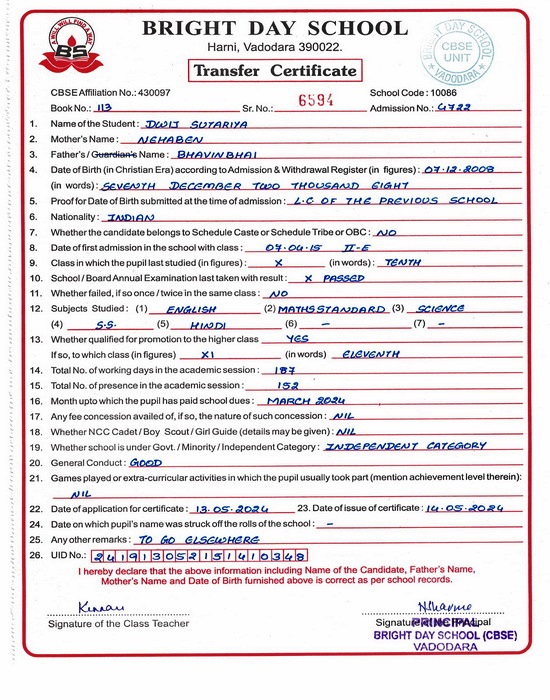 A WILL WILL FIND A WAY
BS
BRIGHT DAY SCHOOL
Harni, Vadodara 390022.
BRIGHT DAY SCHOOL
CBSE
UNIT
* VADODARA *
Transfer Certificate
CBSE Affiliation No.: 430097 School Code : 10086
Book No.: 113 Sr. No.: 6594 Admission No.: 4722
1. Name of the Student : DWIJ SUTARIYA
2. Mother's Name : NEHABEN
3. Father's / Guardian's Name : BHAVINBHAI
4. Date of Birth (in Christian Era) according to Admission & Withdrawal Register (in figures) : 07.12.2008
(in words) : SEVENTH DECEMBER TWO THOUSAND EIGHT
5. Proof for Date of Birth submitted at the time of admission : L.C OF THE PREVIOUS SCHOOL
6. Nationality : INDIAN
7. Whether the candidate belongs to Schedule Caste or Schedule Tribe or OBC : NO
8. Date of first admission in the school with class : 07.04.15 II-E
9. Class in which the pupil last studied (in figures) : X (in words) : TENTH
10. School / Board Annual Examination last taken with result : X PASSED
11. Whether failed, if so once / twice in the same class : NO
12. Subjects Studied : (1) ENGLISH (2) MATHS STANDARD (3) SCIENCE
(4) S.S. (5) HINDI (6) – (7) –
13. Whether qualified for promotion to the higher class YES
If so, to which class (in figures) XI (in words) ELEVENTH
14. Total No. of working days in the academic session : 187
15. Total No. of presence in the academic session : 152
16. Month upto which the pupil has paid school dues : MARCH 2024
17. Any fee concession availed of, if so, the nature of such concession : NIL
18. Whether NCC Cadet / Boy Scout / Girl Guide (details may be given) : NIL
19. Whether school is under Govt. / Minority / Independent Category : INDEPENDENT CATEGORY
20. General Conduct : GOOD
21. Games played or extra-curricular activities in which the pupil usually took part (mention achievement level therein):
NIL
22. Date of application for certificate : 13.05.2024 23. Date of issue of certificate : 14.05.2024
24. Date on which pupil's name was struck off the rolls of the school : –
25. Any other remarks : TO GO ELSEWHERE
26. UID No.: 241913052151410348
I hereby declare that the above information including Name of the Candidate, Father's Name,
Mother's Name and Date of Birth furnished above is correct as per school records.
Signature of the Class Teacher Signature of the Principal
PRINCIPAL
BRIGHT DAY SCHOOL (CBSE)
VADODARA